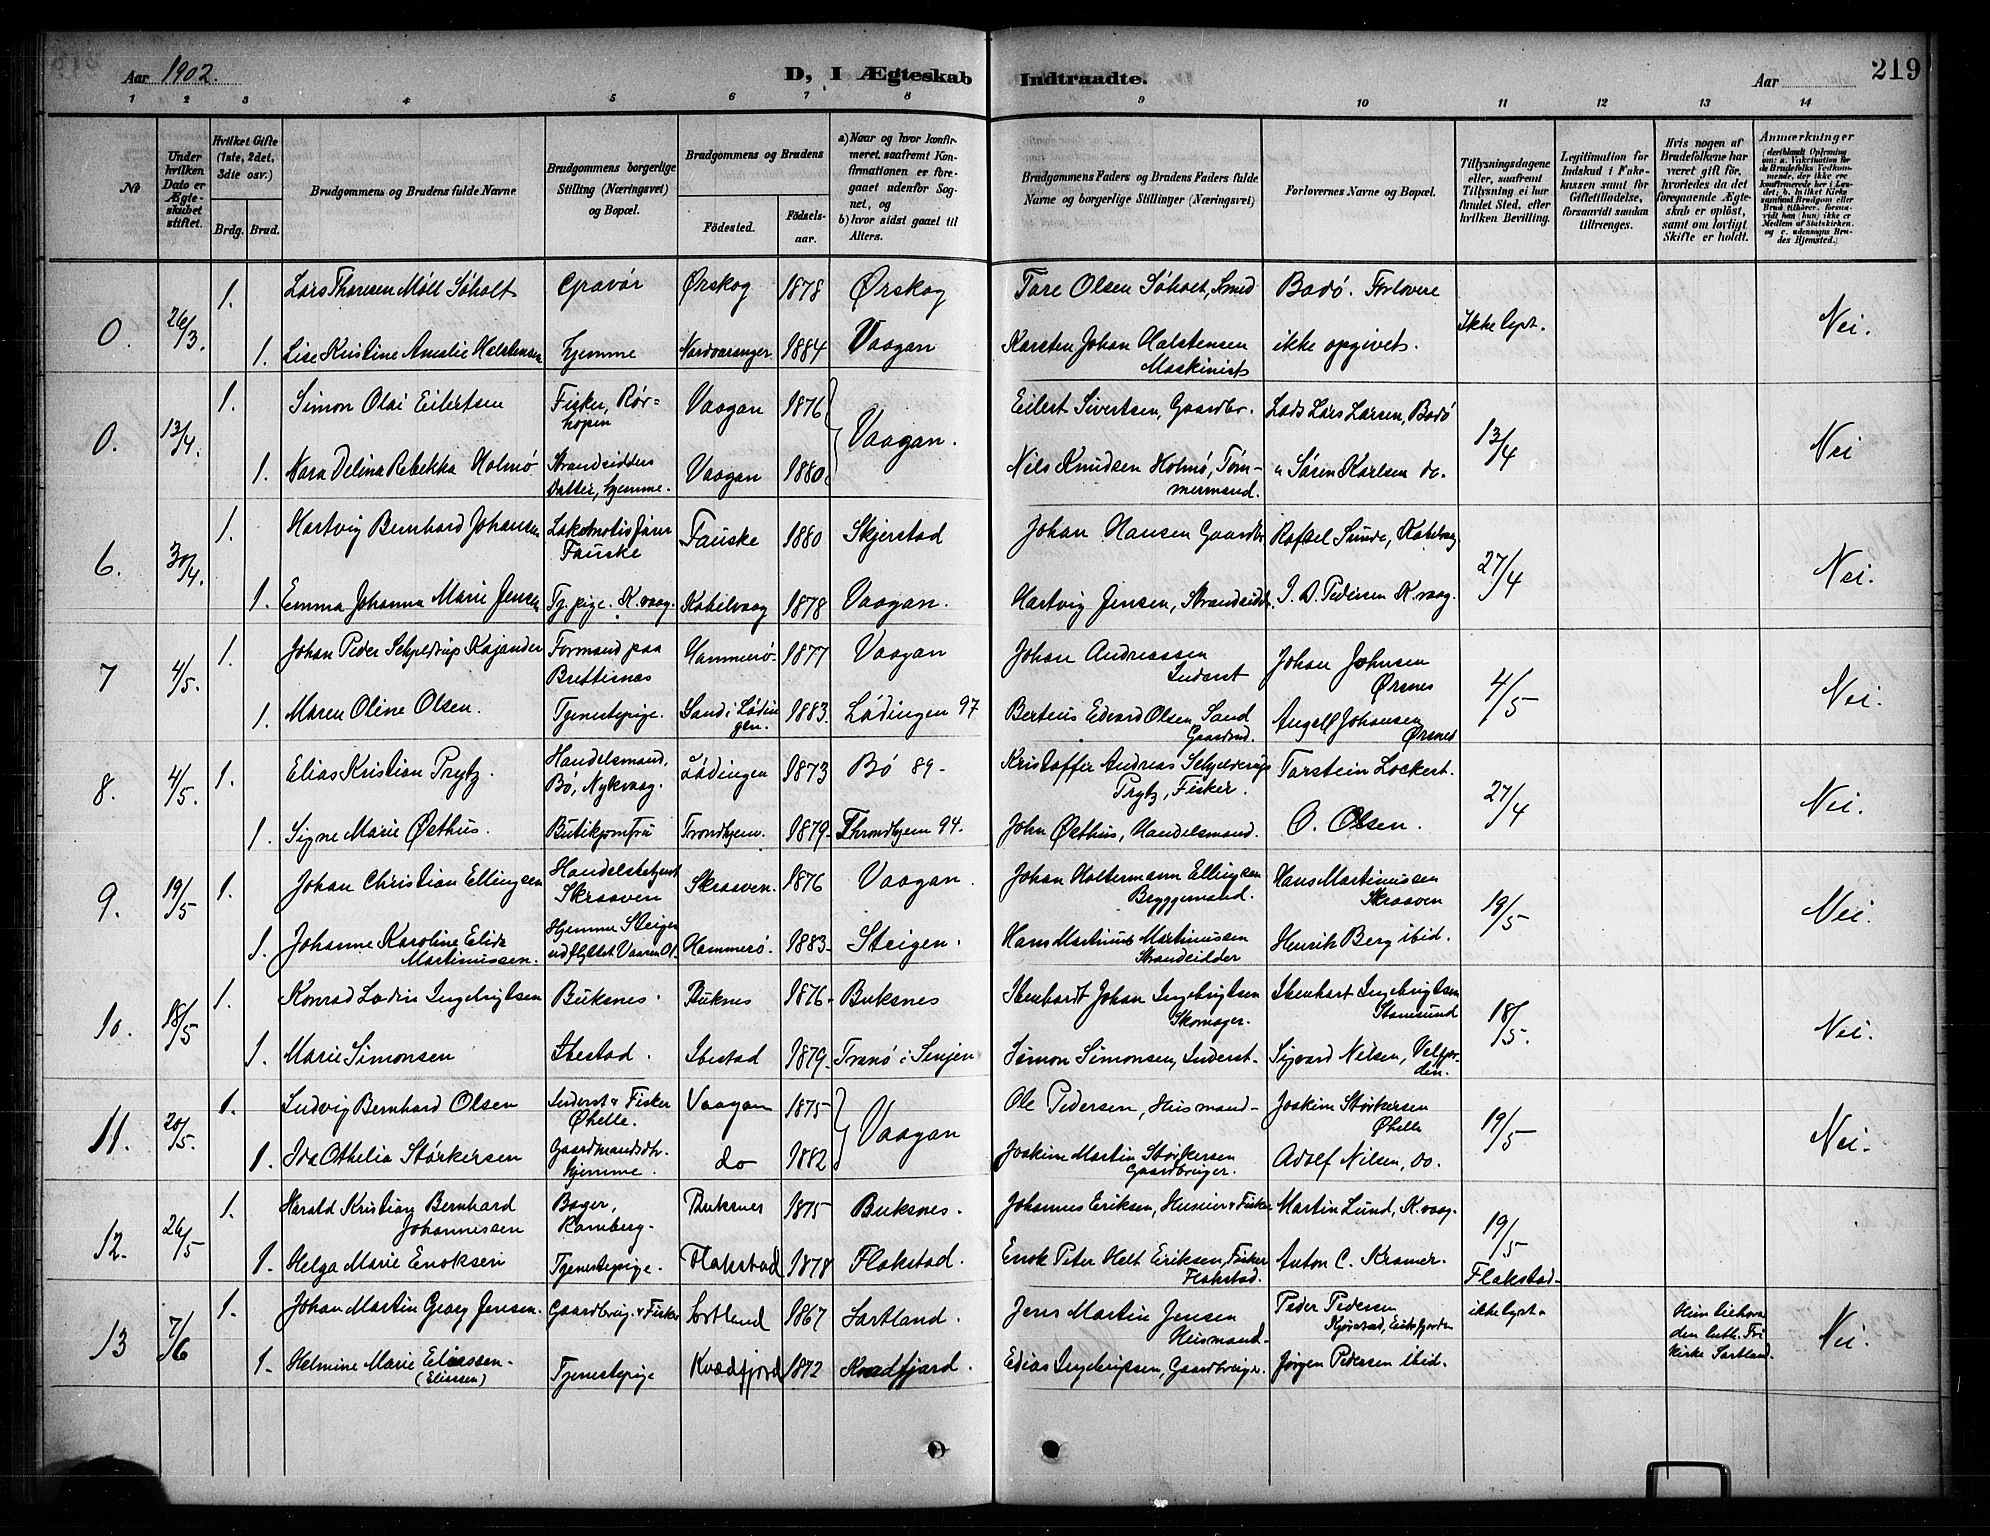 Aar 1902.
D, I Ægteskab Indtraadte.
Aar
219
1 2 3 4 5 6 7 8 9 10 11 12 13 14
No
Under hvilken Dato er Ægteskabet stiftet.
Hvilket Gifte (1ste, 2det, 3die osv.)
Brdg. Brud.
Brudgommens og Brudens fulde Navne
Brudgommens borgerlige Stilling (Næringsvei) og Bopæl.
Brudgommens og Brudens
Födested.
Födselsaar.
a) Naar og hvor konfirmeret, saafremt Konfirmationen er foregaaet udenfor Sognet, og
b) hvor sidst gaaet til Alters.
Brudgommens Faders og Brudens Faders fulde Navne og borgerlige Stillinger (Næringsvei)
Forlovernes Navne og Bopæl.
Tillysningsdagene eller, saafremt Tillysning ei har fundet Sted, efter hvilken Bevilling.
Legitimation for Indskud i Enkekassen samt for Giftetilladelse, forsaavidt saadan tiltrænges.
Hvis nogen af Brudefolkene har været gift för, hvorledes da det foregaaende Ægteskab er oplöst, samt om lovligt Skifte er holdt.
Anmærkninger
0. 26/3. 1. Lars Thoresen Möll Søholt Gravør Ørskog 1878 Ørskog Tore Olsen Søholt, Smed Bodø. Forlovere Ikke lyst. Nei.
1. Lise Kristine Amalie Halstensen hjemme Nordvaranger 1884 Vaagan Karsten Johan Halstensen Maskinist ikke opgivet.
0. 13/4. 1. Simon Olai Eilertsen Fisker, Rørhopen Vaagan 1876 Vaagan. Eilert Sivertsen, Gaardbr. Lods Lars Larsen, Bodø 13/4 Nei
1. Nora Delina Rebekka Holmø Strandsidders Datter, hjemme. Vaagan 1880 Nils Knudsen Holmø, Tømmermand. " Søren Karlsen do.
6. 30/4. 1. Hartvig Bernhard Johansen Lokomotivfører Fauske Fauske 1880 Skjerstad Johan Hansen Gaardbr Rafael Sunde, Kabelvaag 27/4 Nei.
1. Emma Johanna Marie Jensen Tj. pige. K.vaag. Kabelvaag 1878 Vaagan. Hartvig Jensen, Strandsidd. I. D. Pedersen K.vaag.
7 4/5. 1. Johan Peder Schjeldrup Kajander Formand paa Brettesnes Hammerø 1877 Vaagan Johan Andreassen Inderst Johan Johnsen Ørsnes 4/5 Nei.
1. Maren Oline Olsen. Tjenestepige. Sand i Lødingen. 1883. Lødingen 97 Berteus Edvard Olsen Sand Gaardmd. Angell Johansen Ørsnes
8. 4/5. 1. Elias Kristian Prytz. Handelsmand, Bø, Nykvaag. Lødingen 1873 Bø 89. Kristoffer Andreas Schjelderup Prytz, Fisker. Torstein Lockert. 27/4 Nei.
1. Signe Marie Østhus. Butikjomfru Trondhjem. 1879. Throndhjem 94. John Østhus, Handelsmand. O. Olsen.
9. 19/5 1. Johan Christian Ellingsen Handelsbetjent Skraaven Skraaven. 1876 Vaagan. Johan Holtermann Ellingsen Bryggemand. Hans Martinussen Skraaven 19/5 Nei.
1. Johanne Karoline Elida Martinussen. Hjemme Steigen udflyttet Hammerø. 1883. Steigen. Hans Martinus Martinussen Strandsidder Henrik Berg ibid.
10. 18/5 1. Konrad Lodin Ingebrigtsen Buksnes. Buknes 1876. Buksnes Ibenhardt Johan Ingebrigtsen Skomager. Ibenhart Ingebrigtsen Stamsund 18/5. Nei.
1. Marie Simonsen Ibestad. Ibestad 1879. Tranø i Senjen Simon Simonsen, Inderst. Sigvard Nilsen, Velfjorden.
11. 20/5. 1. Ludvig Bernhard Olsen Inderst & Fisker Øhelle. Vaagan 1875 Vaagan Ole Pedersen, Husmand. Joakim Størkersen Øhelle 19/5 Nei.
1. Ida Othelia Størkersen Gaardmandsdtr. Hjemme. do 1882 Joakim Martin Størkersen Gaardbruger. Adolf Nilsen, do.
12. 26/5 1. Harald Kristian Bernhard Johannessen Bager, Ramberg. Buksnes 1875 Buksnes. Johannes Eriksen, Huseier & Fisker Martin Lund, K.vaag. 19/5 Flakstad.
1. Helga Marie Enoksen Tjenestepige. Flakstad 1878 Flakstad. Enok Peter Helt Eriksen, Fisker Flakstad. Anton C. Kramer.
13 7/6 1. Johan Martin Georg Jensen. Gaardbrug. & Fisker Sortland 1867 Sortland. Jens Martin Jensen Husmand. Peder Pedersen Kjørstad, Eidsfjorden ikke lyst. Hun tilhører den luth. Frikirke Sortland. Nei.
1. Helmine Marie Eliassen. (Elissen) Tjenestepige Kvædfjord 1872 Kvædfjord. Edias Ingebrigtsen, Gaardbruger. Jørgen Pedersen ibid.